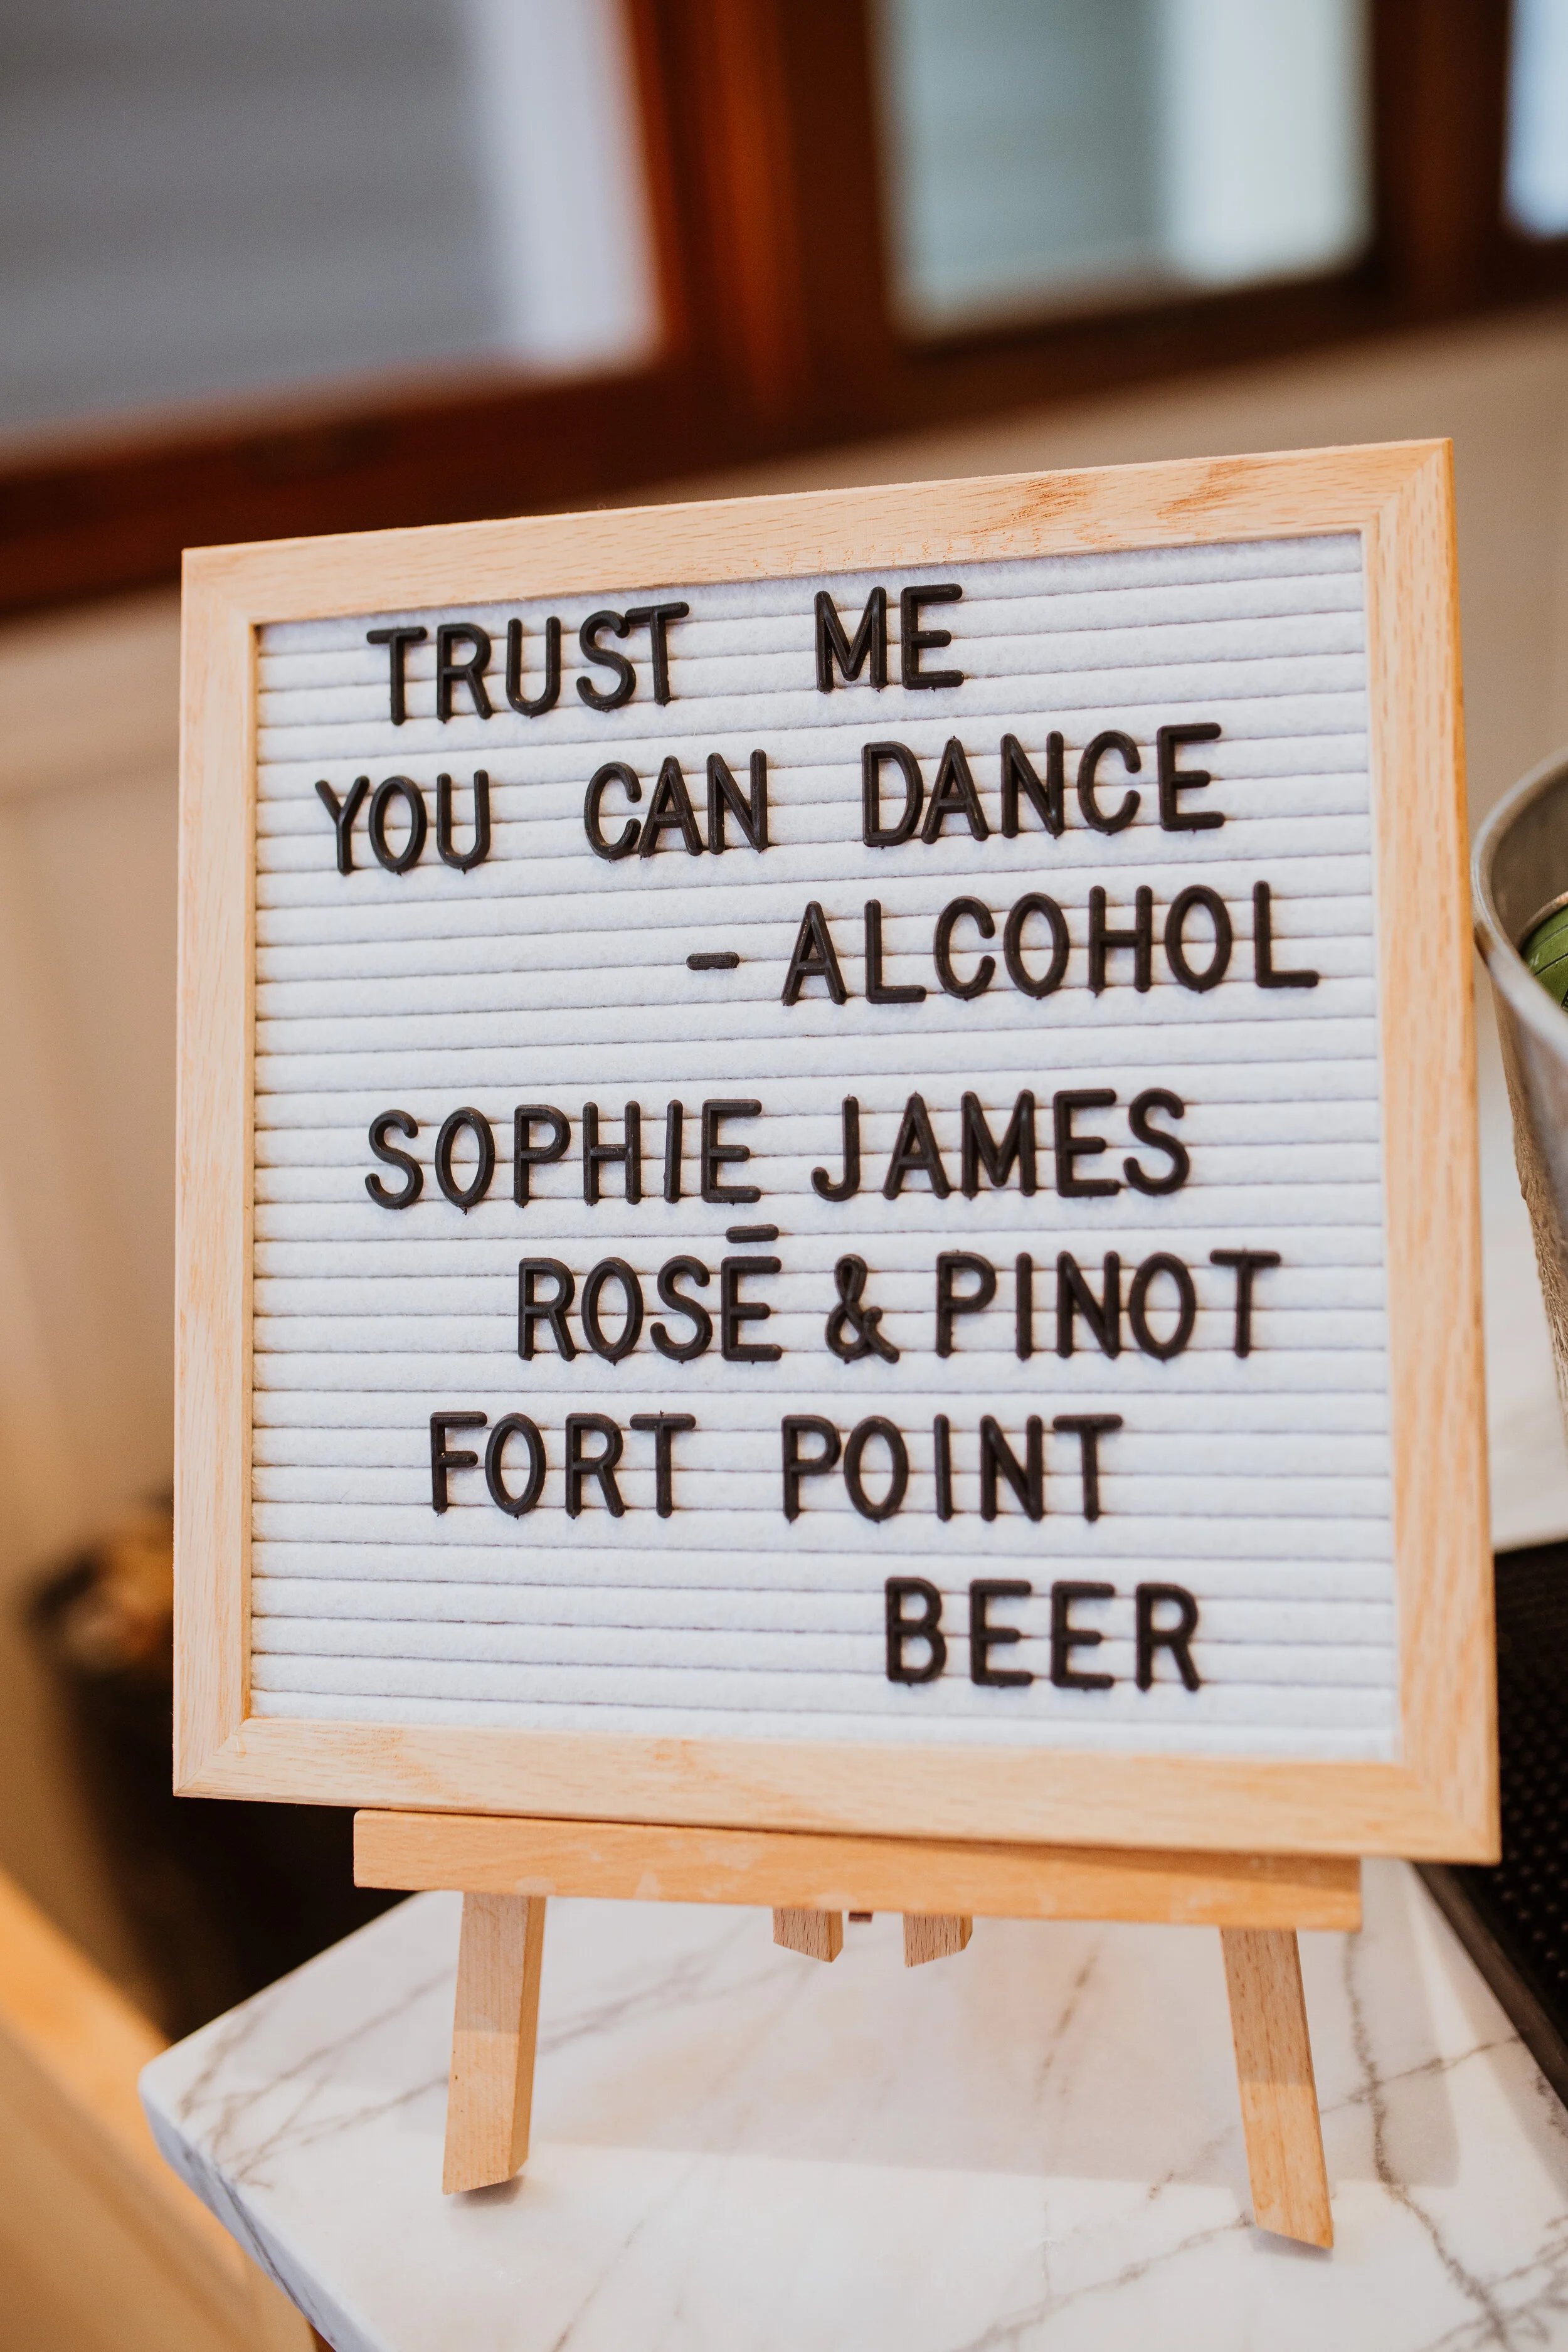 TRUST ME
YOU CAN DANCE
- ALCOHOL
SOPHIE JAMES
ROSĒ & PINOT
FORT POINT
BEER